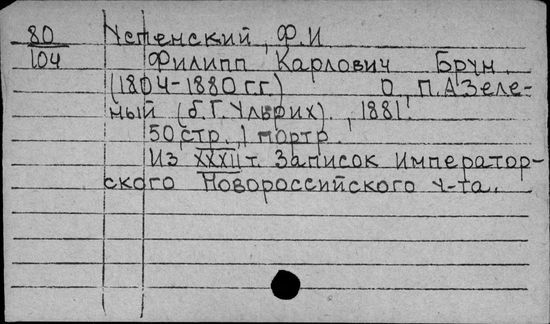 80 Успенский, Ф.И
104 Филипп Карлович Брун.
(1804-1880 г.г.) О. П.А Зеле-
ный (б. Г. Ульрих), 1881.
50 стр. 1 портр.
Из XXXII т. Записок император-
ского Новороссийского у-та.